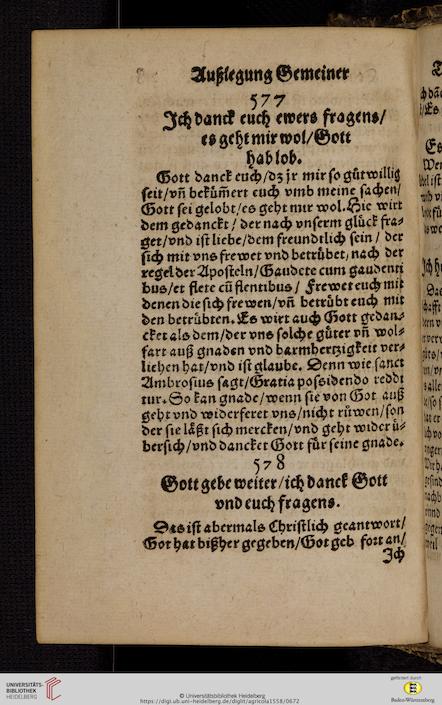 Außlegung Gemeiner
577
Jch danck euch ewers fragens/
es geht mir wol/Gott
hab lob.
Gott danck euch/dz jr mir so gůtwillig
seit/vñ bekům̃ert euch vmb meine sachen/
Gott sei gelobt/es geht mir wol. Hie wirt
dem gedanckt/ der nach vnserm glück fra-
get/vnd ist liebe/dem freundtlich sein/ der
sich mit vns frewet vnd betrübet, nach der
regel der Aposteln/Gaudete cum gaudenti
bus/et flete cũ flentibus/ Frewet euch mit
denen die sich frewen/vñ betrübt euch mit
den betrübten. Es wirt auch Gott gedan-
cket als dem/der vns solche güter vñ wol-
fart auß gnaden vnd barmhertzigkeit ver-
liehen hat/vnd ist glaube. Denn wie sanct
Ambrosius sagt/Gratia possidendo reddi
tur. So kan gnade/wenn sie von Got auß
geht vnd widerferet vns/nicht rüwen/son
der sie läßt sich mercken/vnd geht wider ü-
bersich/vnd dancket Gott für seine gnade.
578
Gott gebe weiter/ich danck Gott
vnd euch fragens.
Das ist abermals Christlich geantwort/
Got hat bißher gegeben/Got geb fort an/
Jch
UNIVERSITÄTS-
BIBLIOTHEK
HEIDELBERG
© Universitätsbibliothek Heidelberg
https://digi.ub.uni-heidelberg.de/diglit/agricola1558/0672
gefördert durch
Baden-Württemberg